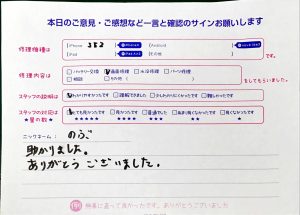 本日のご意見・ご感想など一言と確認のサインお願いします
修理機種は
iPhone SE2
Android
iPad
その他
修理内容は
バッテリー交換 画面修理 水没修理 パーツ修理
相談 その他
をしてもらいました。
スタッフの説明は
わかりやすかったです 理解できました 少しわかりにくかったです 難しかったです
スタッフの対応は
★星の数★
とても良かったです 良かったです 普通でした あまり良くなかったです 良くなかったです
★★★★★ ★★★★ ★★★ ★★ ★
ニックネーム: のぶ
助かりました。
ありがとうございました。